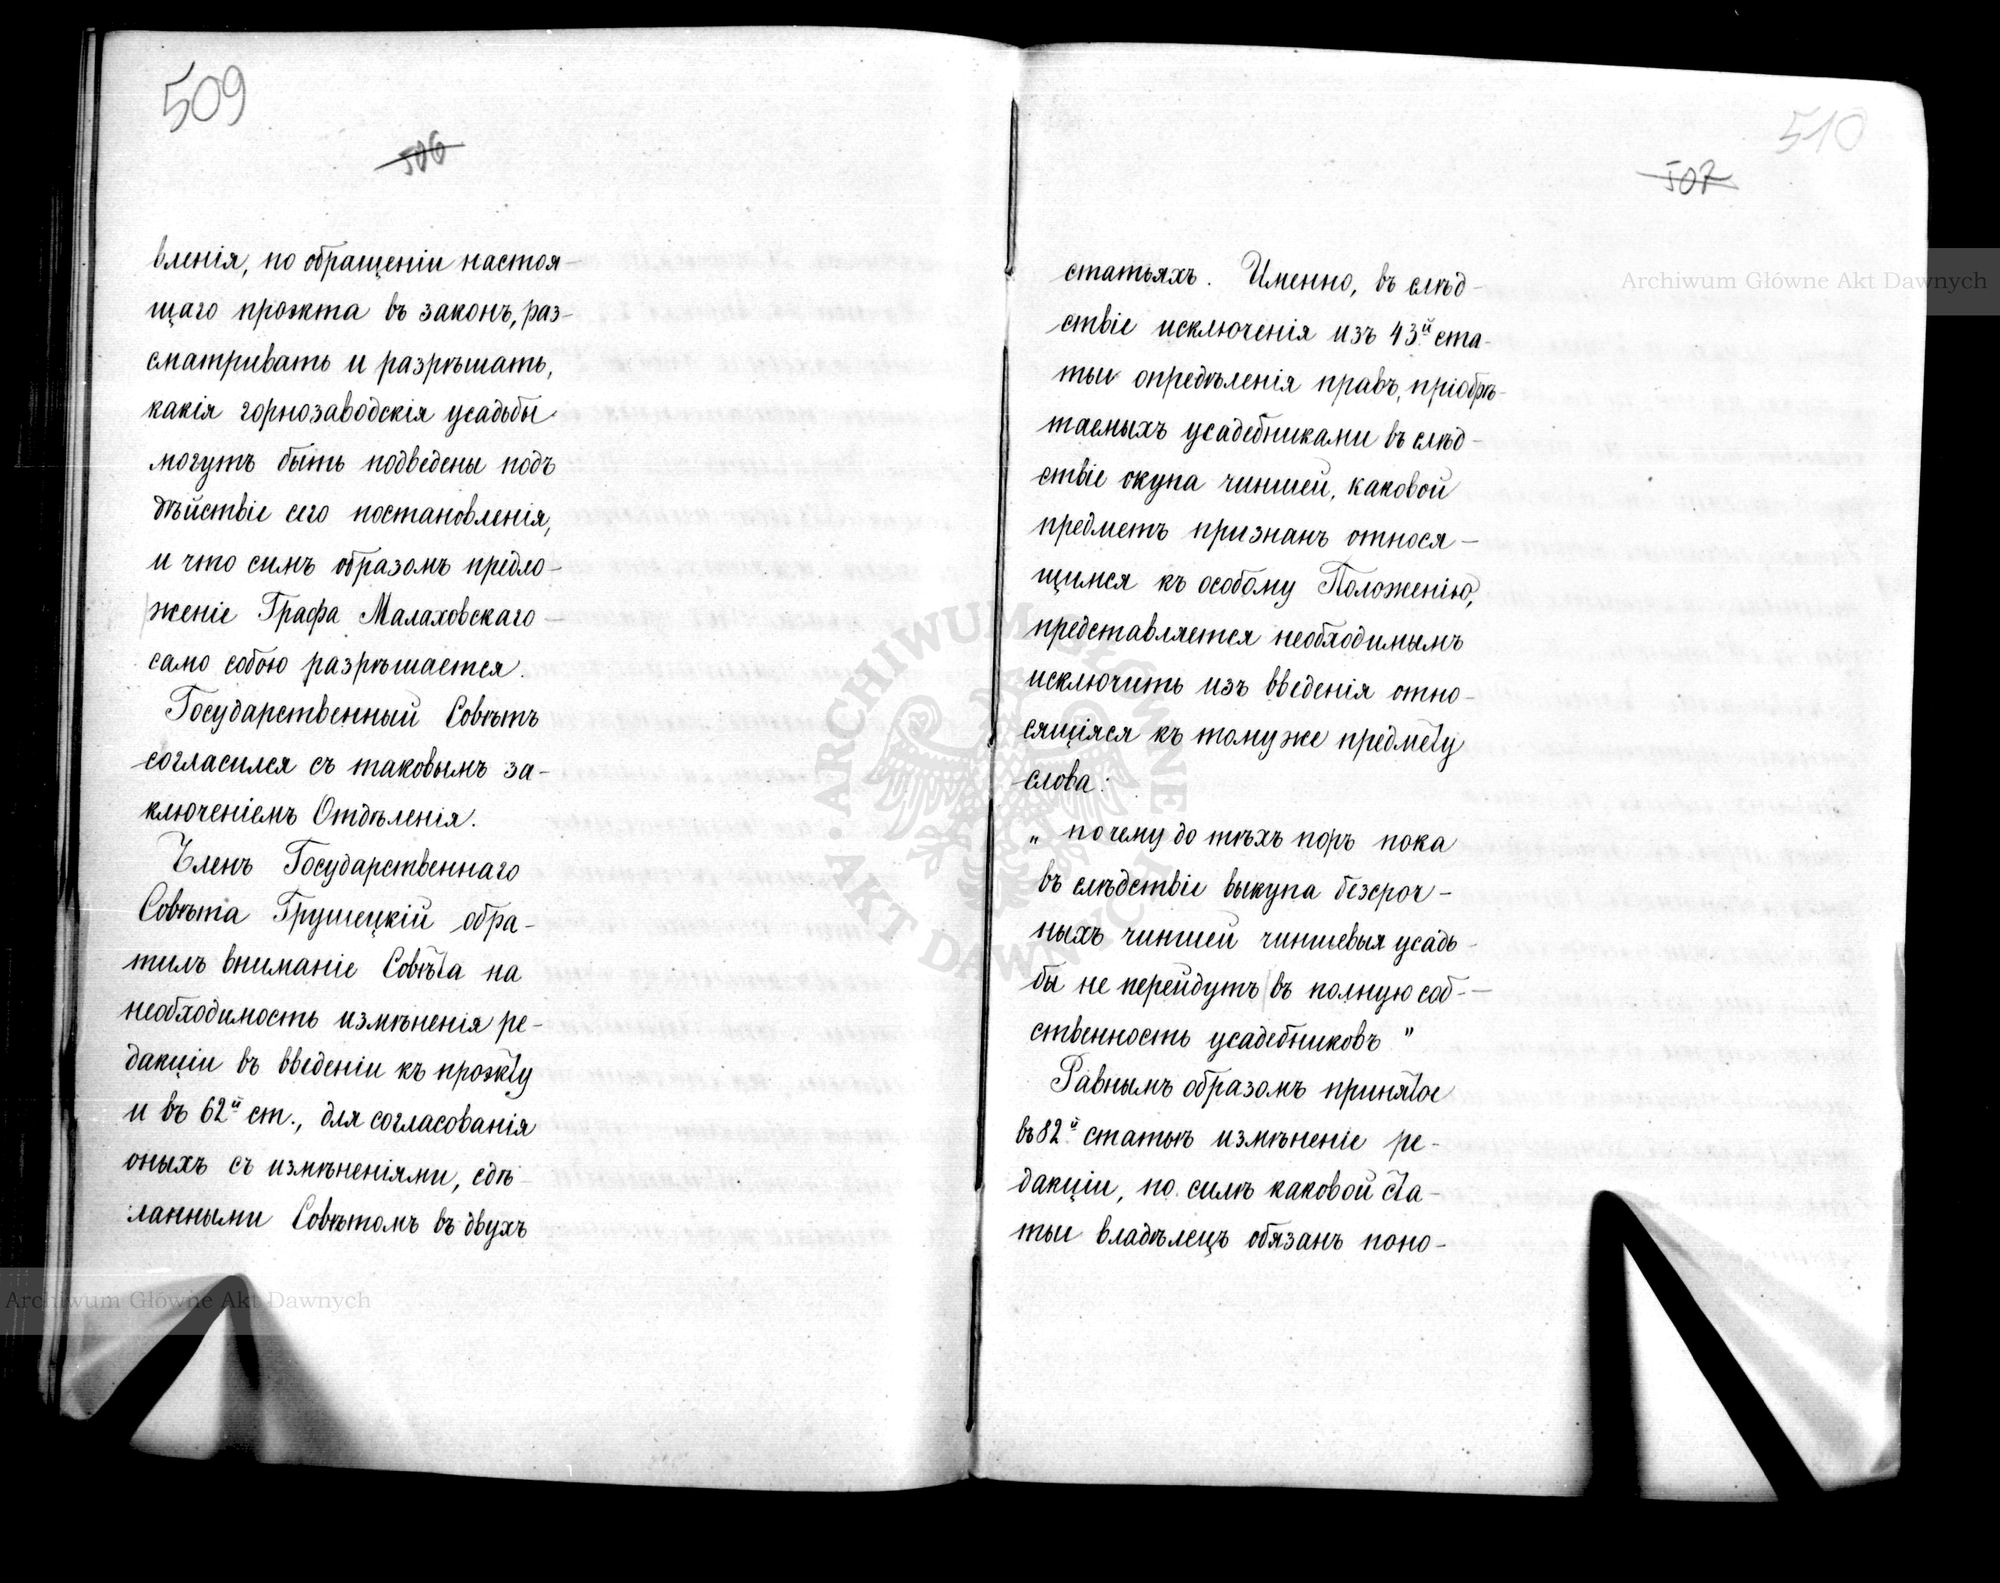 509
506
вленія, по обращеніи настоя-
щаго проэкта въ законъ, раз-
сматривать и разрѣшать,
какія горнозаводскія усадьбы
могутъ быть подведены подъ
дѣйствіе сего постановленія,
и что симъ образомъ предло-
женіе Графа Малаховскаго
само собою разрѣшается.
Государственный Совѣтъ
согласился съ таковымъ за-
ключеніемъ Отдѣленія.
Членъ Государственнаго
Совѣта Грушецкій обра-
тилъ вниманіе Совѣта на
необходимость измѣненія ре-
дакціи въ введеніи къ проэкту
и въ 62й ст., для согласованія
оныхъ съ измѣненіями, сдѣ-
ланными Совѣтомъ въ двухъ
510
507
статьяхъ. Именно, въ слѣд-
ствіе исключенія изъ 43й ста-
тьи опредѣленія правъ, пріобрѣ-
таемыхъ усадебниками въ слѣд-
ствіе окупа чиншей, каковой
предметъ признанъ относя-
щимся къ особому Положенію,
представляется необходимымъ
исключить изъ введенія отно-
сящіяся къ тому же предмету
слова:
„почему до тѣхъ поръ пока
въ слѣдствіе выкупа безсроч-
ныхъ чиншей чиншевыя усадь-
бы не перейдутъ въ полную соб-
ственность усадебниковъ"
Равнымъ образомъ принятое
въ 82й статьѣ измѣненіе ре-
дакціи, по силѣ каковой ста-
тьи владѣлецъ обязанъ поно-
Archiwum Główne Akt Dawnych
Archiwum Główne Akt Dawnych
ARCHIWUM GŁÓWNE AKT DAWNYCH